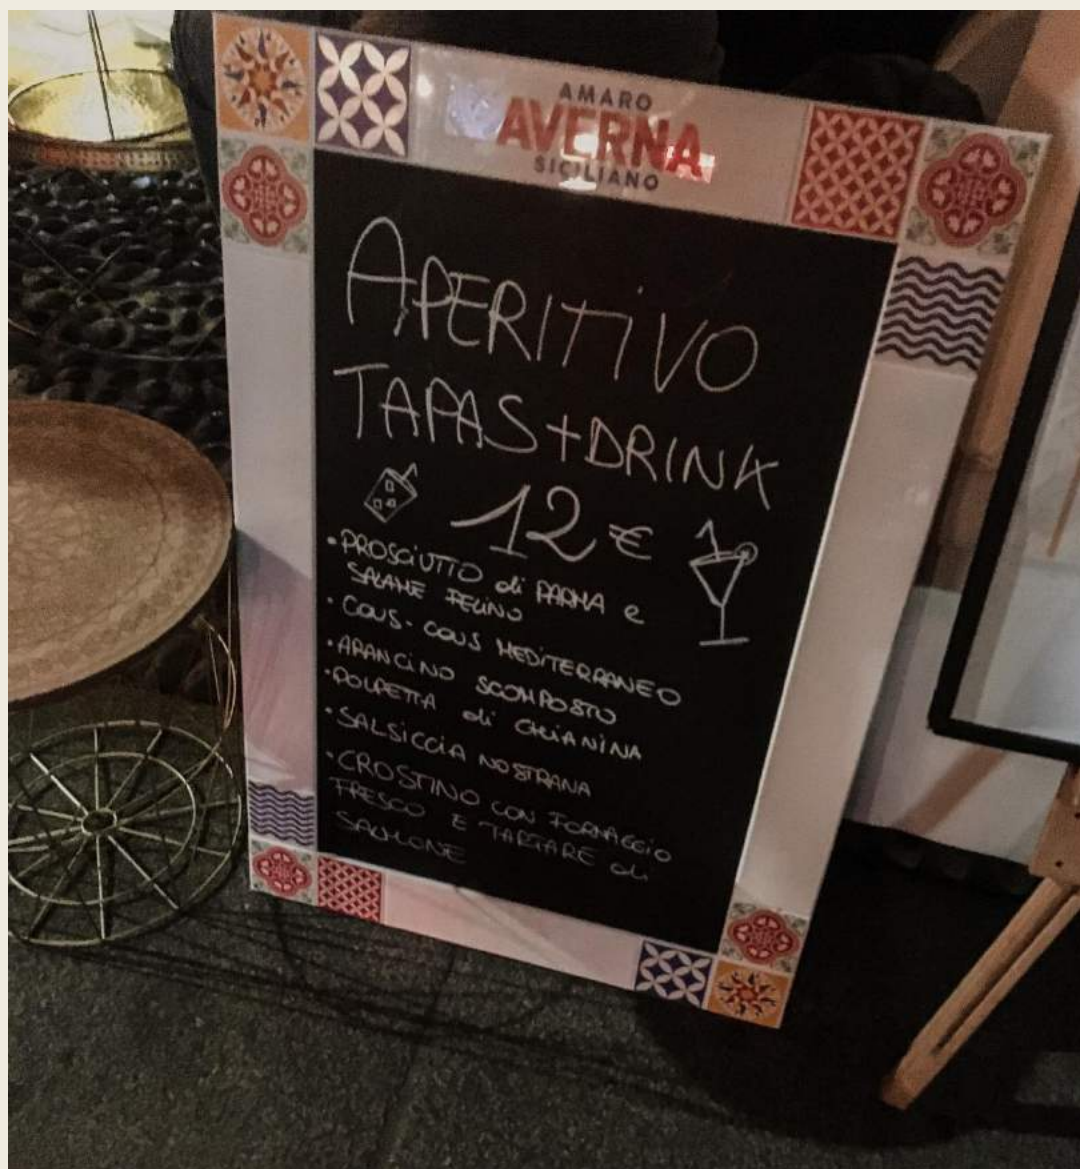 AMARO
AVERNA
SICILIANO
APERITIVO
TAPAS+DRINK
12€
• PROSCIUTTO di PARMA e
SALAME FELINO
• COUS-COUS MEDITERRANEO
• ARANCINO SCOMPOSTO
• POLPETTA di CHIANINA
• SALSICCIA NOSTRANA
• CROSTINO CON FORMAGGIO
FRESCO E TARTARE di
SALMONE